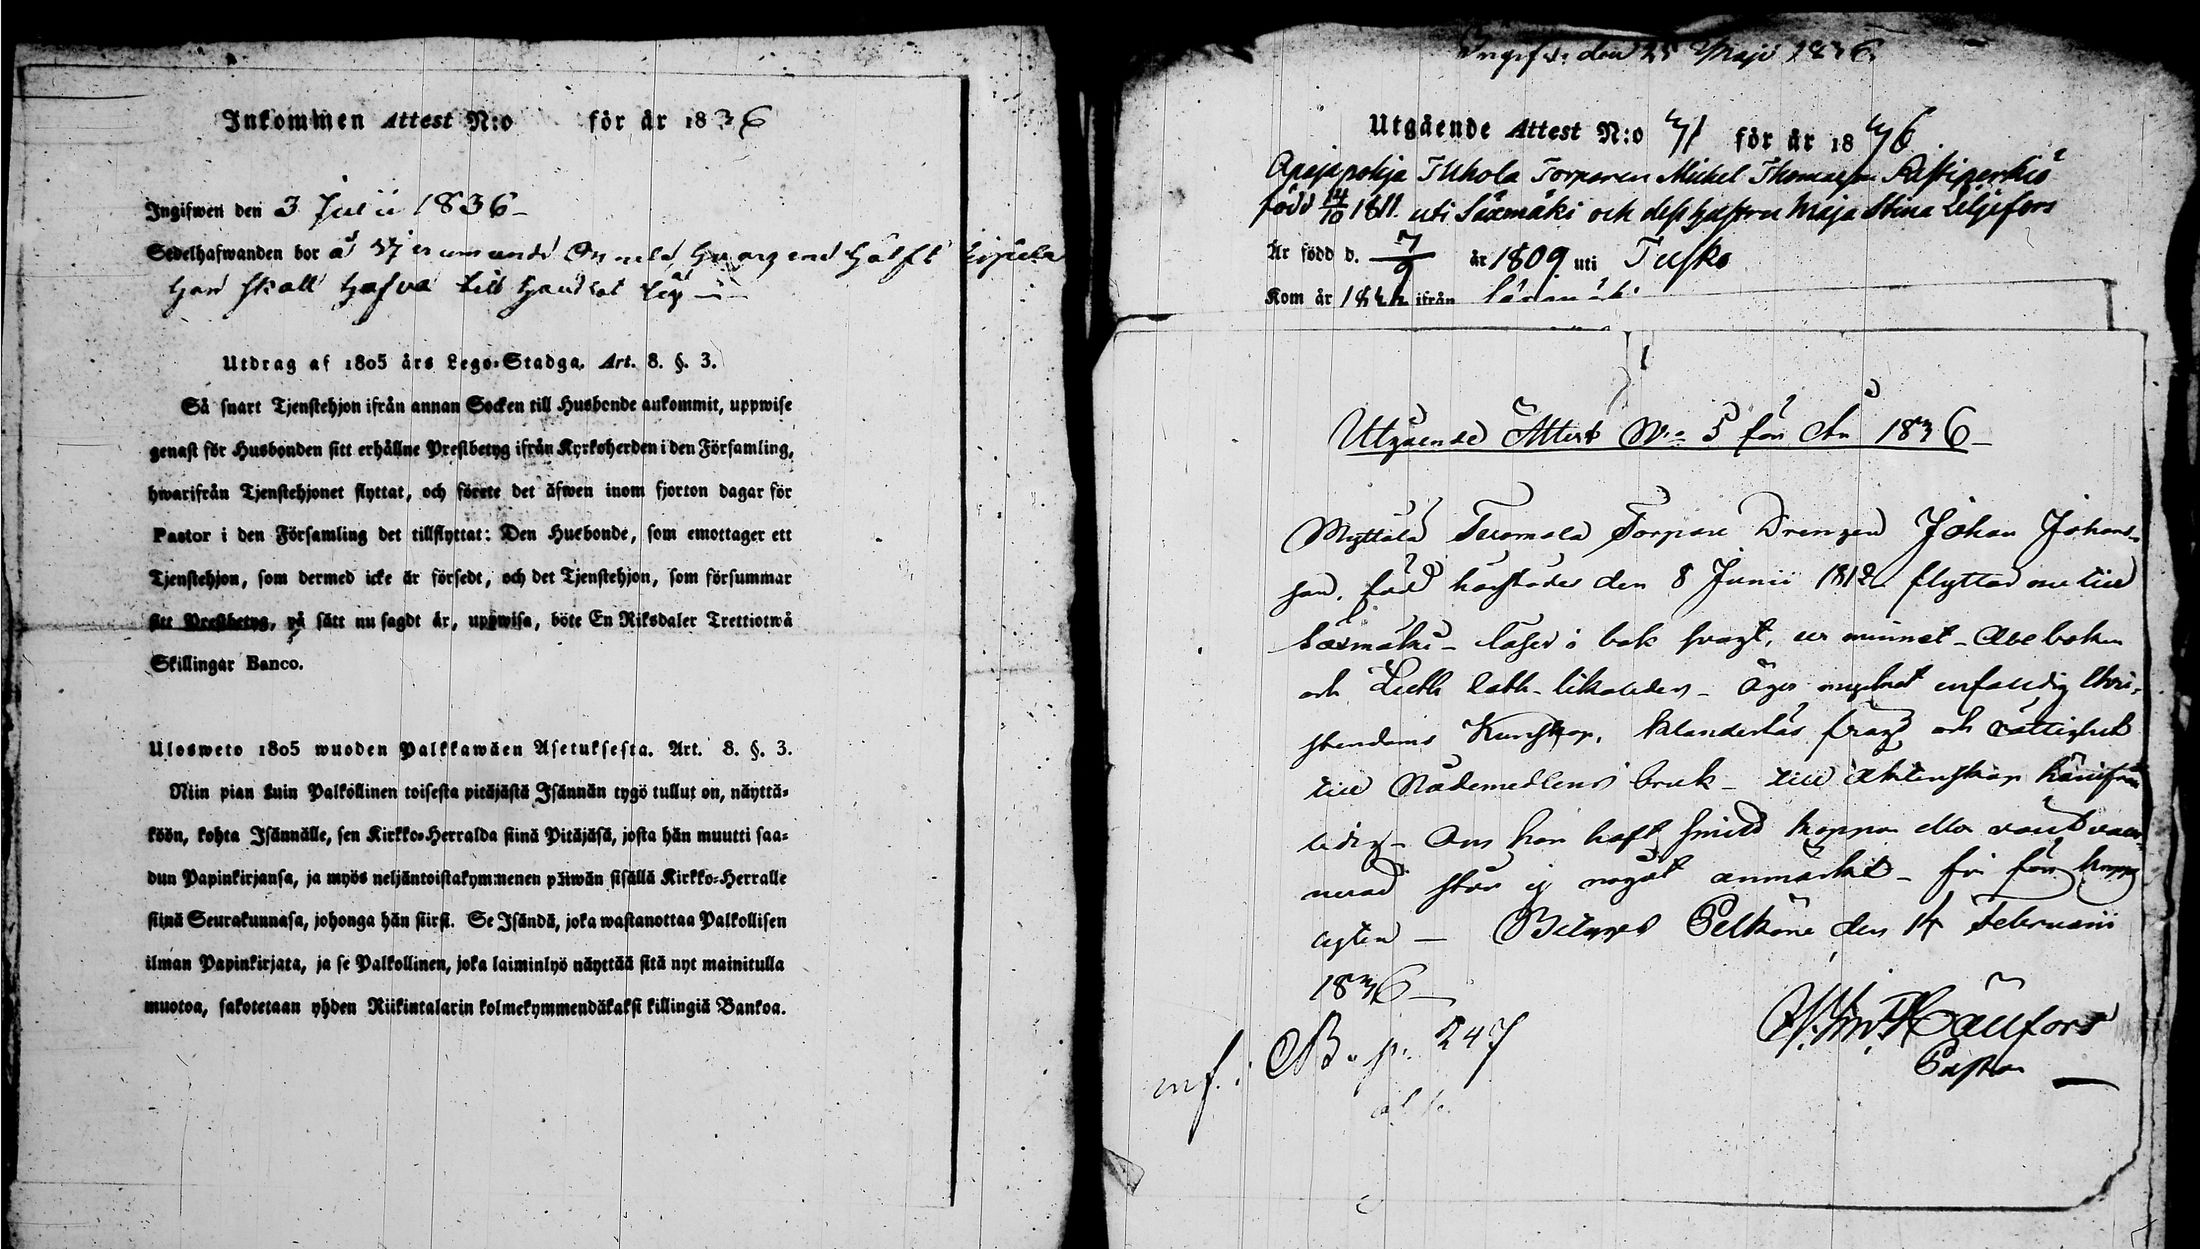 Inkommen Attest N:o för år 1836
Ingifwen den 3 Julii 1836
Sedelhafwanden bor å
Han skall hafva till
Utdrag af 1805 års Lego-Stadga. Art. 8. §. 3.
Så snart Tjenstehjon ifrån annan Socken till Husbonde ankommit, uppwise
genast för Husbonden sitt erhållne Prestbetyg ifrån Kyrkoherden i den Församling,
hwarifrån Tjenstehjonet flyttat, och förete det äfwen inom fjorton dagar för
Pastor i den Församling det tillflyttat: Den Husbonde, som emottager ett
Tjenstehjon, som dermed icke är försedt, och det Tjenstehjon, som försummar
sitt Prestbetyg, på sätt nu sagdt är, uppwisa, böte En Riksdaler Trettiotwå
Skillingar Banco.
Ulosweto 1805 wuoden Palkkawäen Asetuksesta. Art. 8. §. 3.
Niin pian kuin Palköllinen toisesta pitäjästä Isännän tygö tullut on, näyttä-
köön, kohta Isännälle, sen Kirkko-Herralda siinä Pitäjäsä, josta hän muutti saa-
dun Papinkirjansa, ja myös neljäntoistakymmenen päiwän sisällä Kirkko-Herralle
siinä Seurakunnasa, johonga hän siirsi. Se Isändä, joka wastanottaa Palkollisen
ilman Papinkirjata, ja se Palkollinen, joka laiminlyö näyttää sitä nyt mainitulla
muotoa, sakotetaan yhden Riikintalarin kolmekymmendäkaksi killingiä Bankoa.
den 25 Maji 1836
Utgående Attest N:o 41 för år 1846
Apajapohja Uhola Torparen Michel Thomasson
född 14/10 1811 uti Säxmäki och dess hustru Maja Stina Liljefors
Är född d. 7/9 år 1809 uti
Kom år ifrån Säxmäki
Utgående Attest N:o 5 för År 1836
Torpare Drengen Johan Johans-
son, född härstädes den 8 Junii 1812 flyttar nu till
Säxmäki - läser i bok svagt, ur minnet - Abc boken
och Luth. Cath. likaledes - Äger enfaldig Chri-
stendoms Kunskap, klanderlös frägd och rättighet
till Nådemedlens bruk - till Äktenskap
ledig - Om han haft koppor eller
nerad står ej något anmärkt - fri från
- Betygar Pelkäne den 14 Februarii
1836 -
Hällfors
Pastor
inf. i B. p. 247